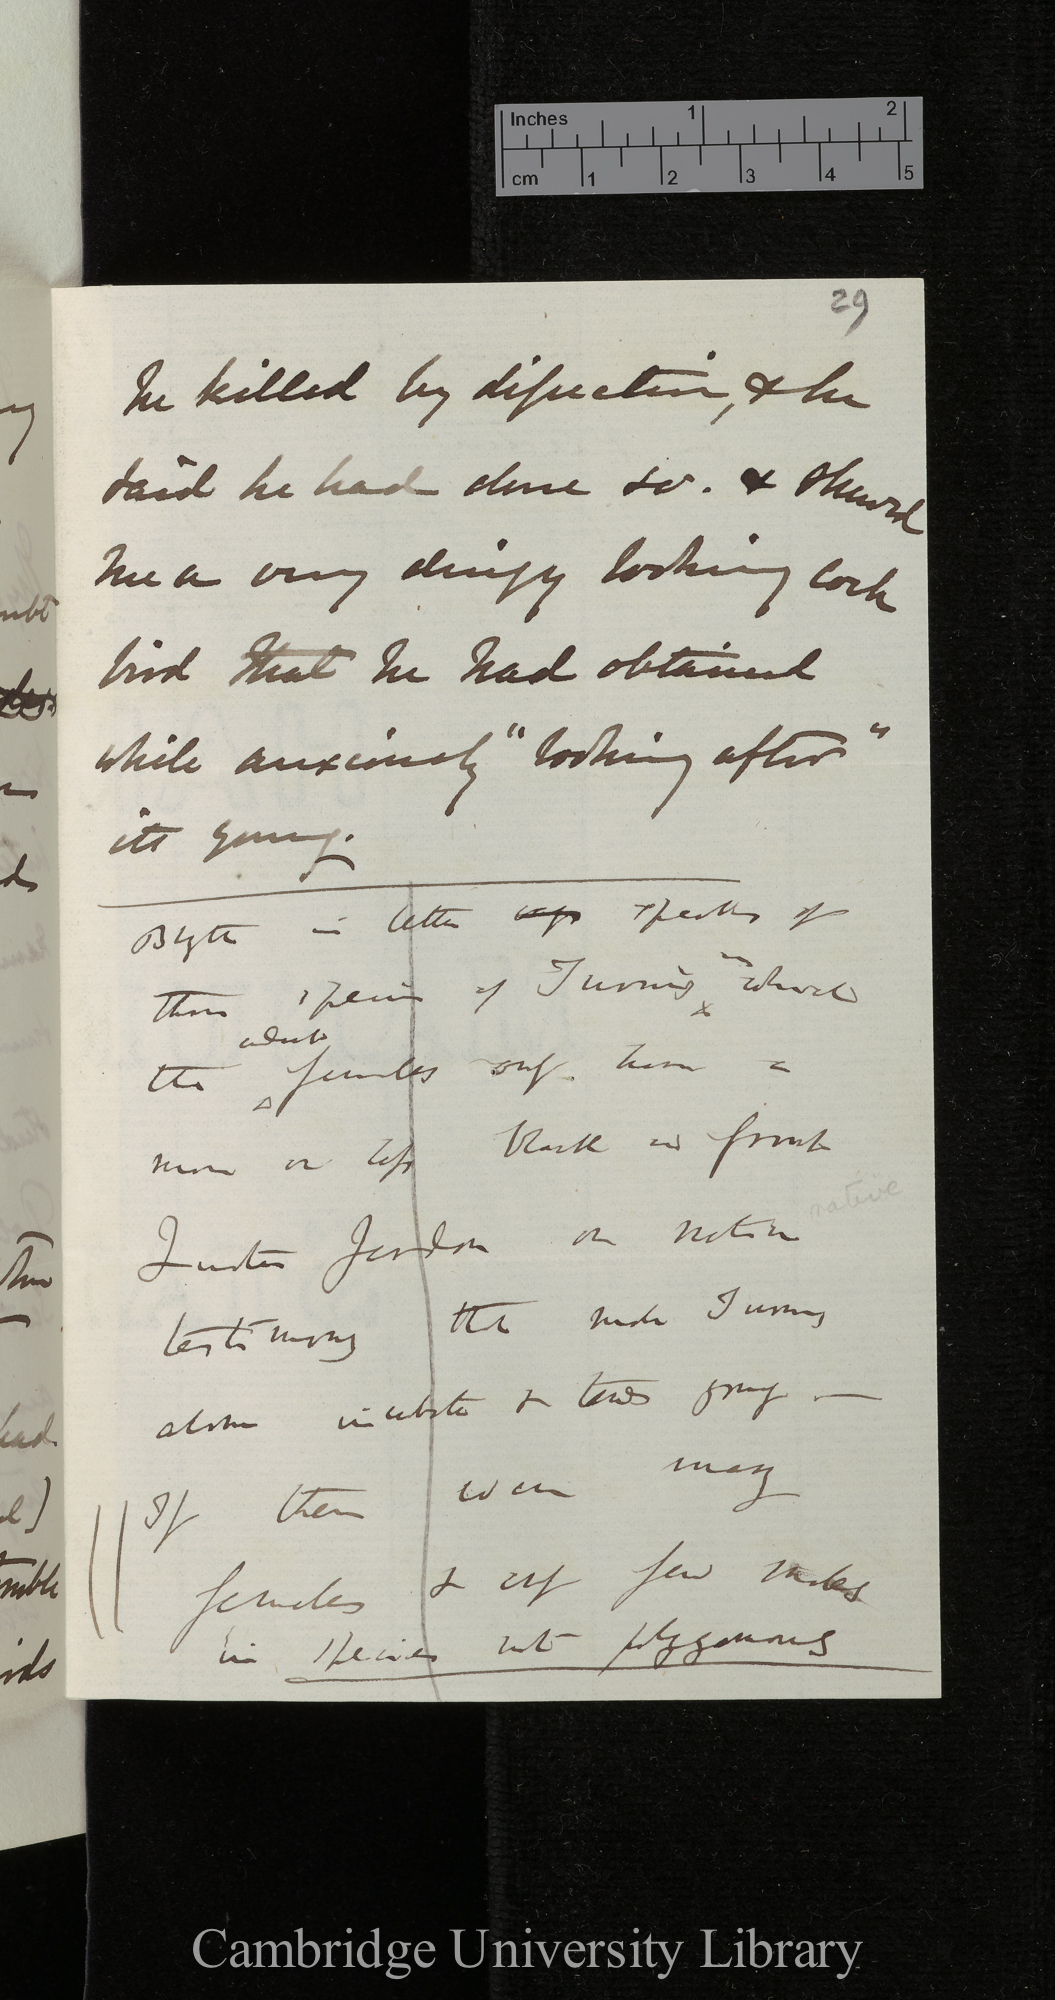 Inches 1 2
cm 1 2 3 4 5
29
he killed by dissection, & he
said he had done so. & shewed
me a very dingy looking cock
bird that he had obtained
while anxiously "looking after"
its young.
Blyth in letter speaks of
three species of Turnix " which
adult
the females only have a
more or less black in front
native
Quotes Jerdon on native
testimony that male Turnix
alone incubate & tends young —
If there were many
females & only few males
in species not polygamous
Cambridge University Library